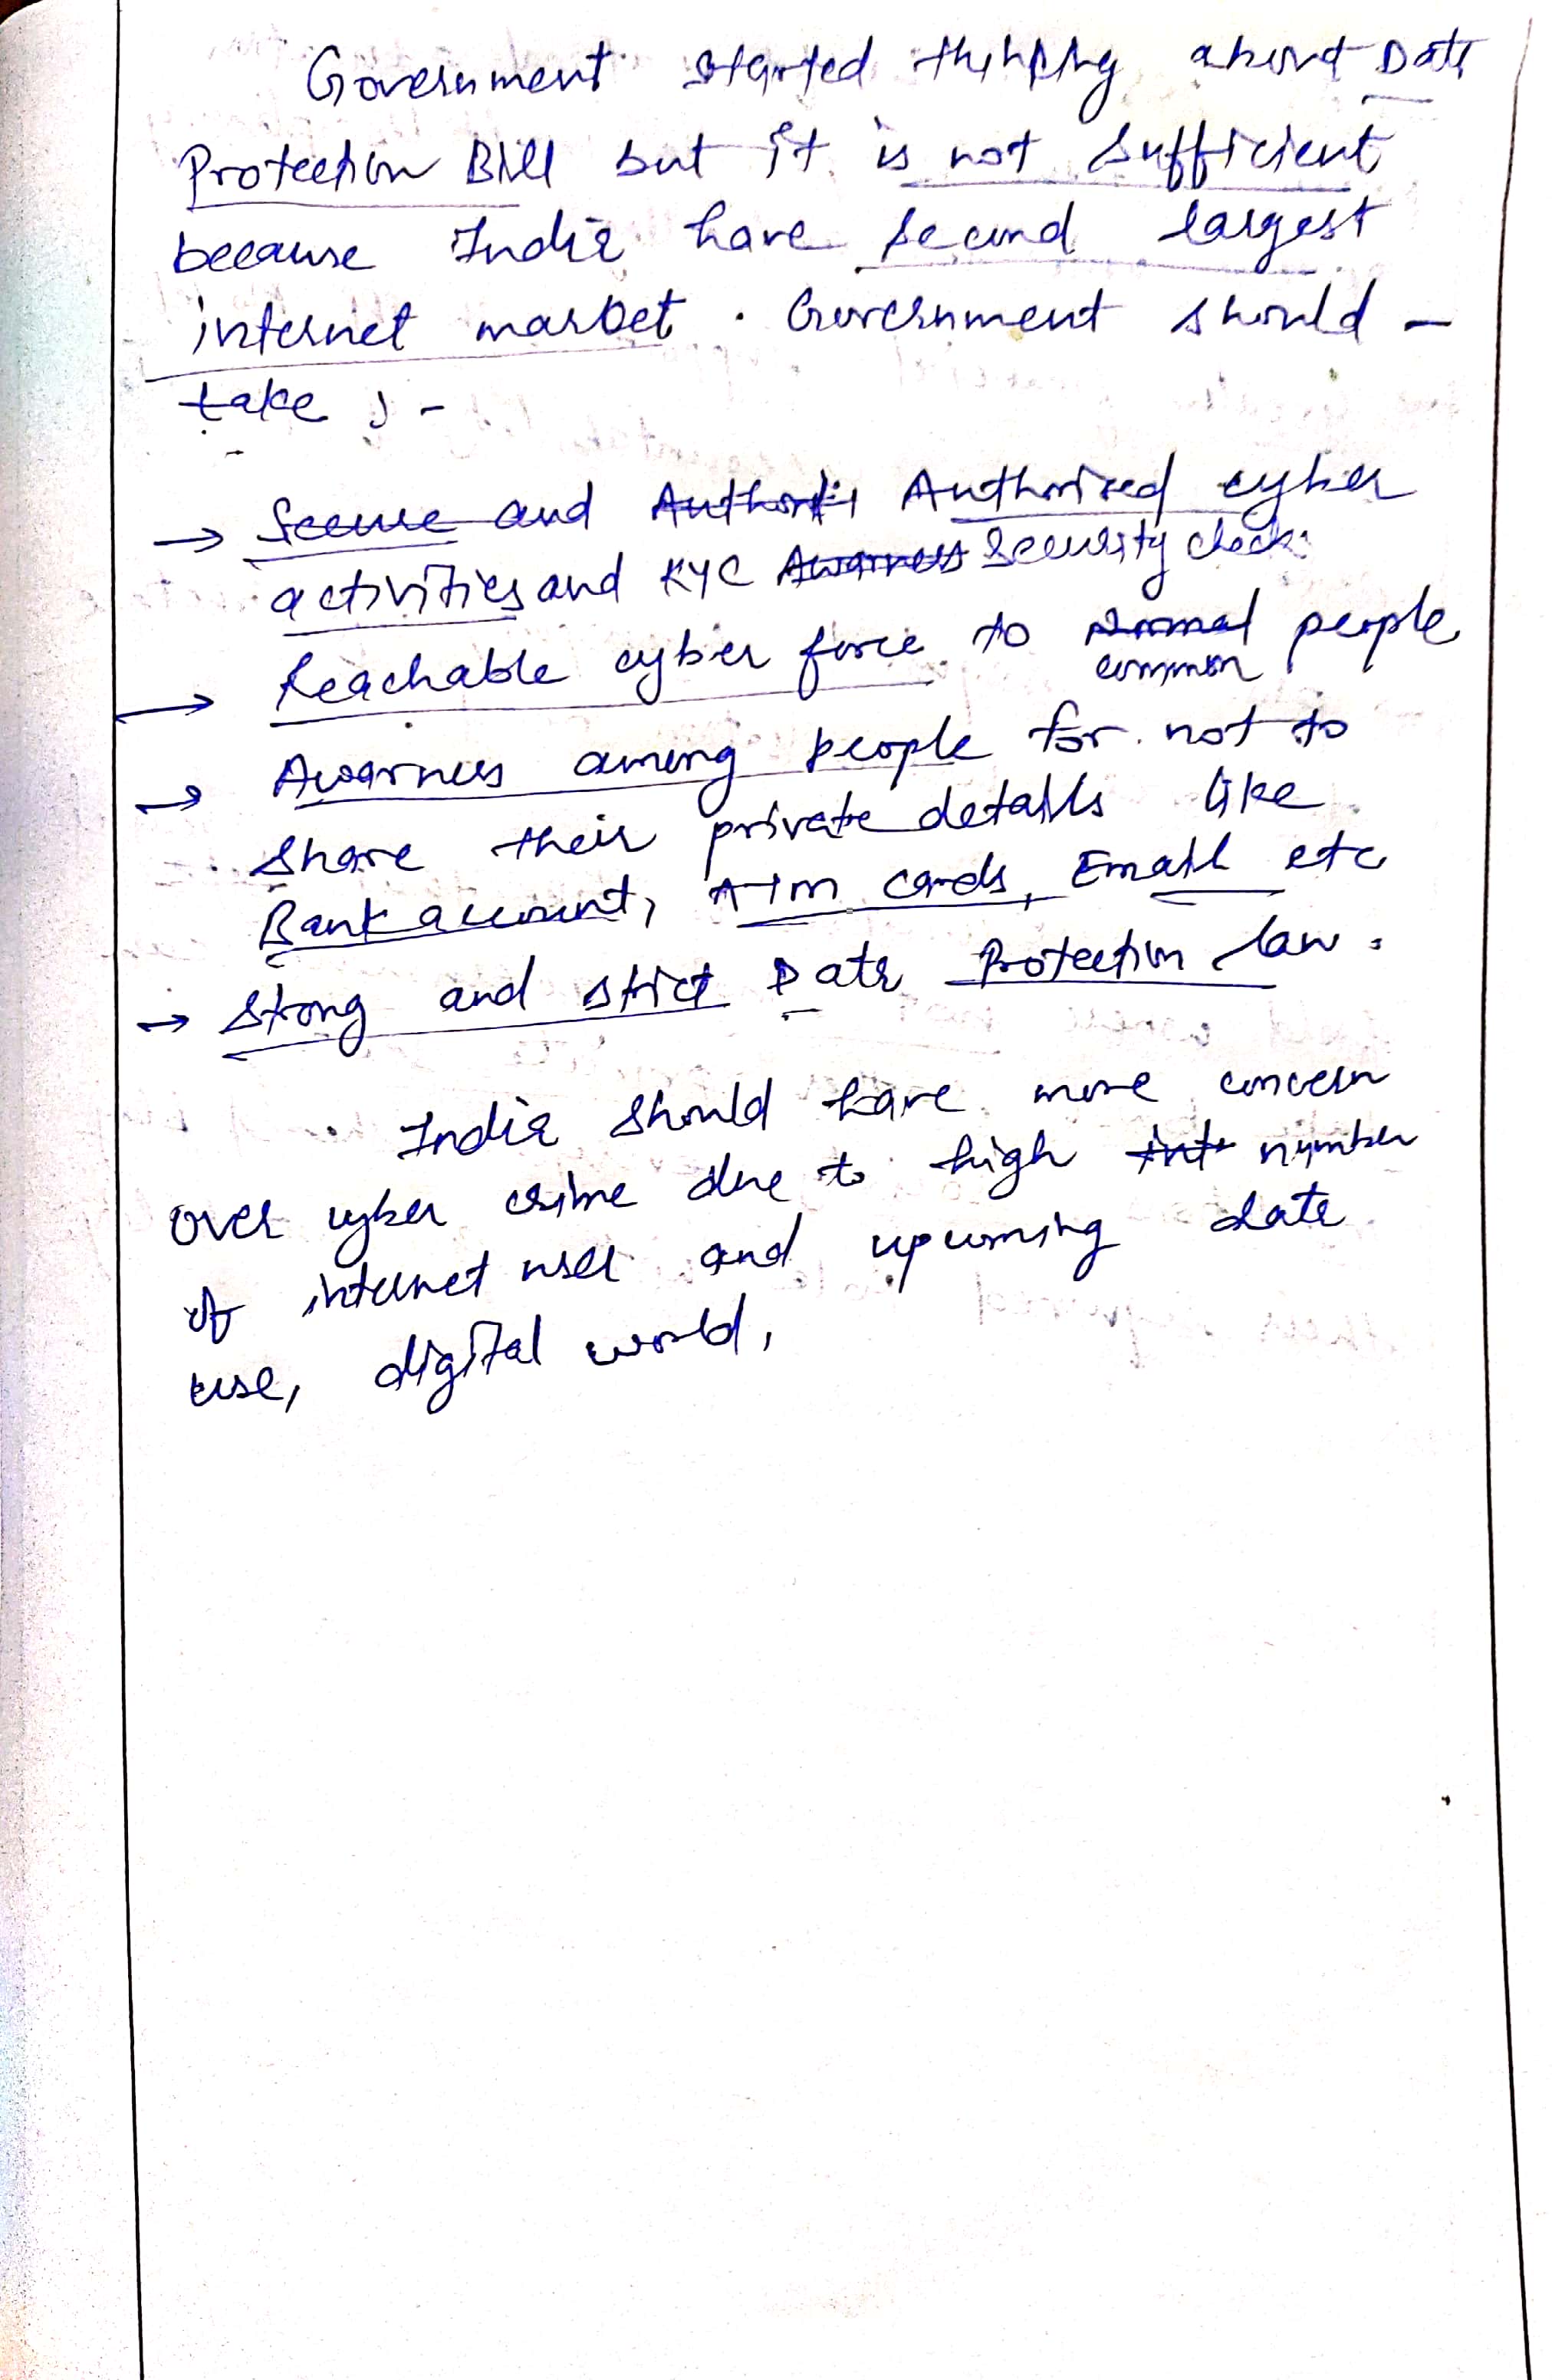 Government started thinking about Data
Protection Bill but it is not sufficient
because India have second largest
internet market. Government should -
take :-
→ Secure and Authori Authorised cyber
activities and KYC Awarness Security check.
→ Reachable cyber force to normal people
common
→ Awarness among people for not to
share their private details like
Bank account, ATM cards, Email etc
→ Strong and strict Data Protection law.
India should have more concern
over cyber crime due to high int number
of internet user and upcoming data
use, digital world,